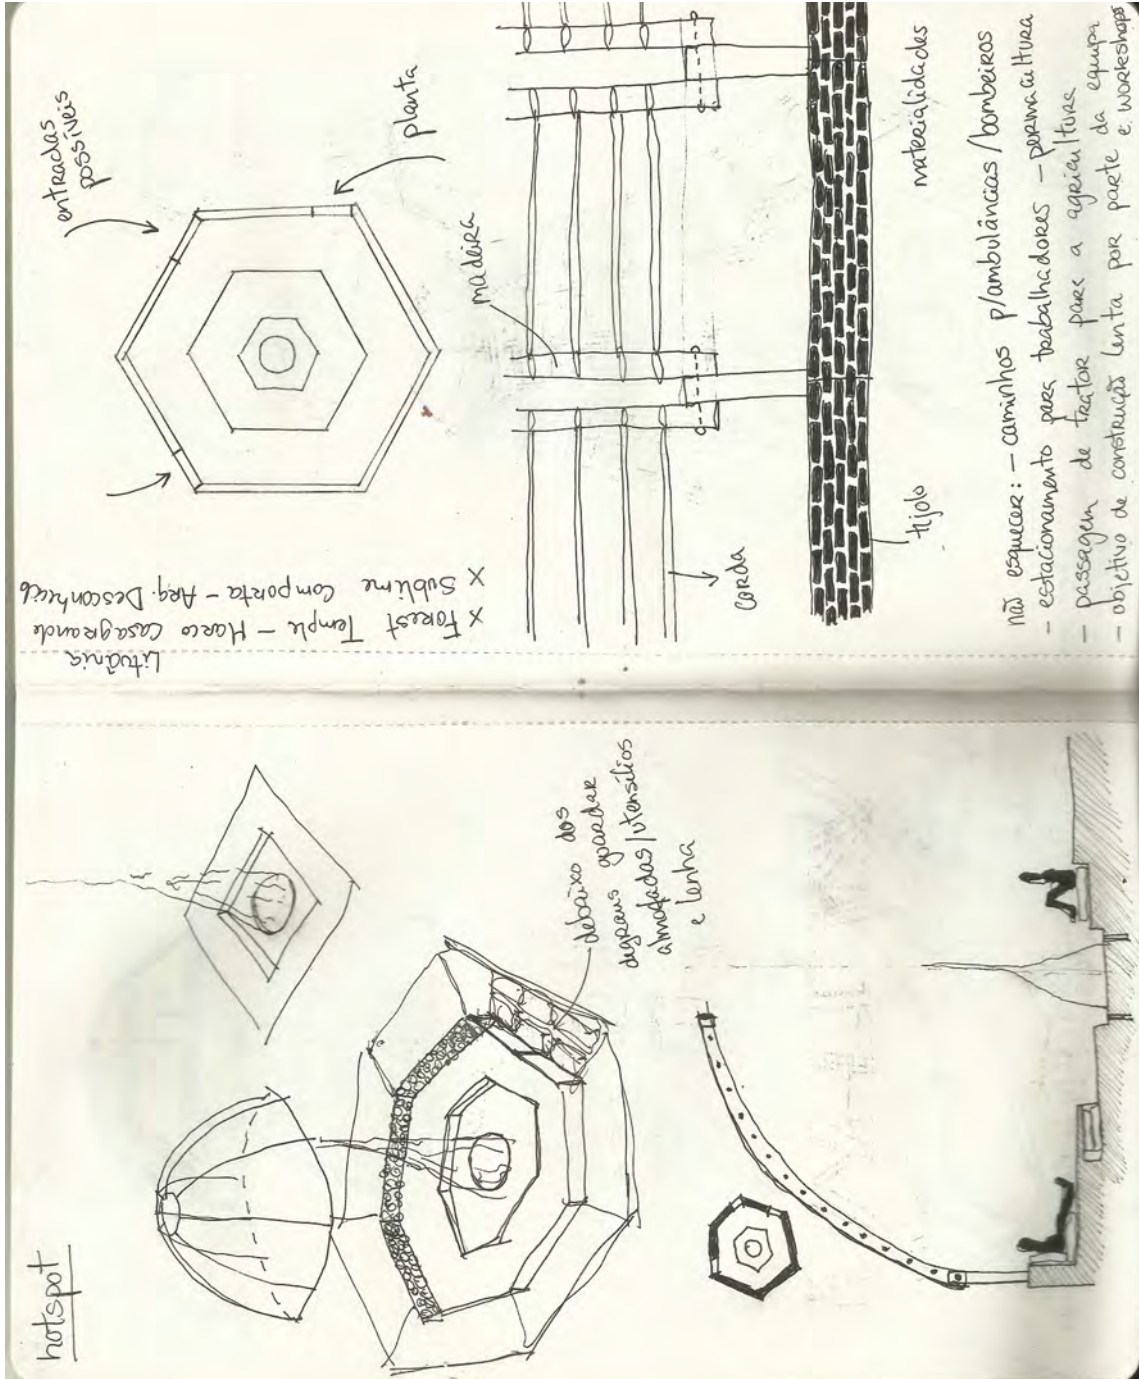 hotspot
debaixo dos
degraus guardar
almofadas/utensílios
e lenha
Lituânia
x Forest Temple - Marco Casagrande
x Sublime Comporta - Arq. Desconhecido
entradas
possíveis
planta
madeira
corda
tijolo
materialidades
não esquecer: - caminhos p/ambulâncias/bombeiros
- estacionamento para trabalhadores - permacultura
- passagem de trator para a agricultura
- objetivo de construção lenta por parte da equipa
e workshops